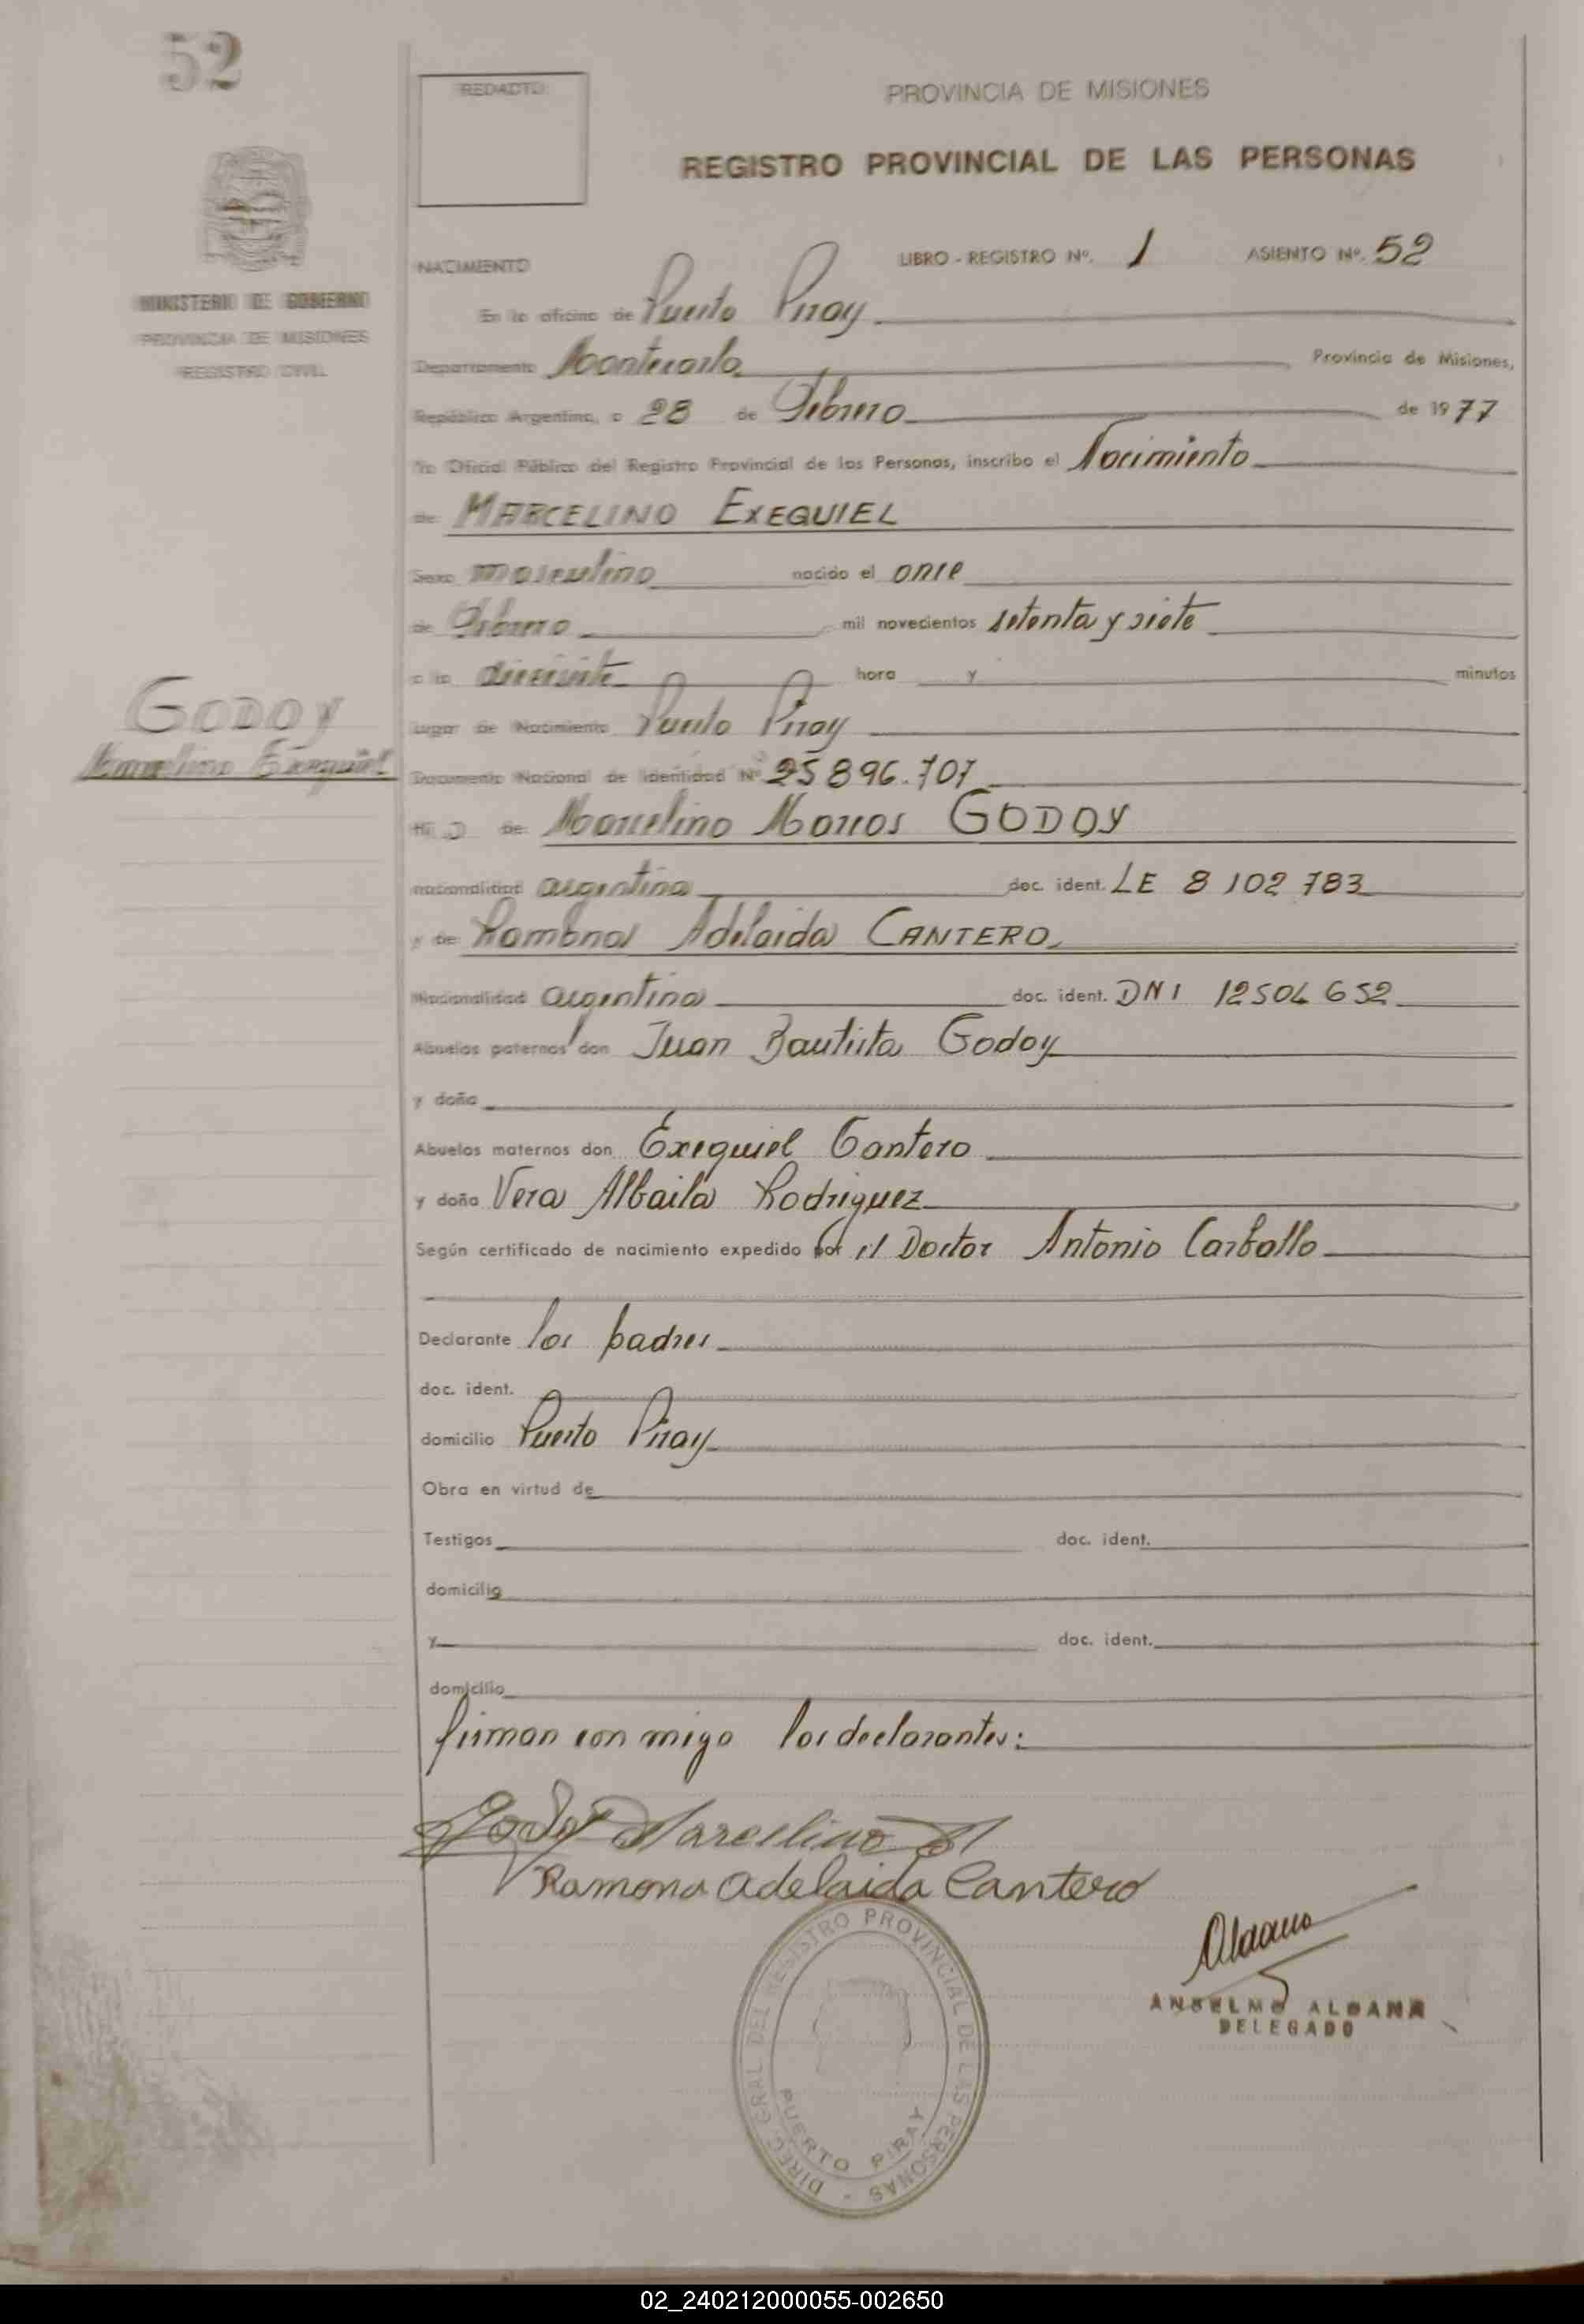 52
REDACTO:
PROVINCIA DE MISIONES
REGISTRO PROVINCIAL DE LAS PERSONAS
MINISTERIO DE GOBIERNO
PROVINCIA DE MISIONES
REGISTRO CIVIL
NACIMIENTO LIBRO - REGISTRO Nº. 1 ASIENTO Nº. 52
En la oficina de Puerto Piray
Departamento Montecarlo Provincia de Misiones,
República Argentina, a 28 de Febrero de 1977
Yo Oficial Público del Registro Provincial de las Personas, inscribo el Nacimiento
de MARCELINO EXEQUIEL
Sexo masculino nacido el once
de Febrero mil novecientos setenta y siete
a la diecisiete hora y minutos
GODOY
Marcelino Exequiel
Lugar de Nacimiento Puerto Piray
Documento Nacional de Identidad Nº 25896.707
Hijo de Marcelino Marcos GODOY
nacionalidad argentina doc. ident. LE 8 102 783
y de Ramona Adelaida CANTERO
Nacionalidad argentina doc. ident. DNI 12504652
Abuelos paternos don Juan Bautista Godoy
y doña
Abuelos maternos don Exequiel Cantero
y doña Vera Albaila Rodriguez
Según certificado de nacimiento expedido por el Doctor Antonio Carballo
Declarante los padres
doc. ident.
domicilio Puerto Piray
Obra en virtud de
Testigos doc. ident.
domicilio
y doc. ident.
domicilio
firman con migo los declarantes:
Godoy Marcelino M
Ramona Adelaida Cantero
Aldana
ANSELMO ALDANA
DELEGADO
DIREC. GRAL DEL REGISTRO PROVINCIAL DE LAS PERSONAS -
PUERTO PIRAY
02_240212000055-002650